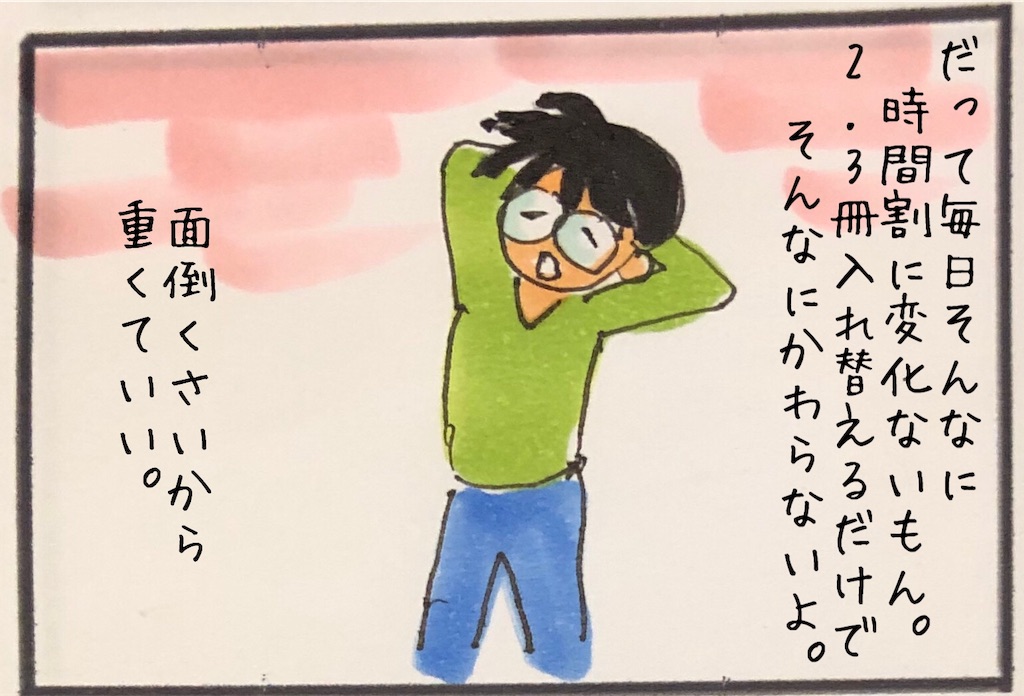 だって毎日そんなに
時間割に変化ないもん。
2.3冊入れ替えるだけで
そんなにかわらないよ。
面倒くさいから
重くていい。